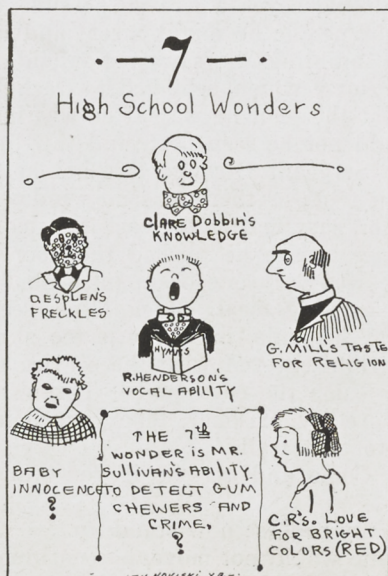 7
High School Wonders
CLARE DOBBIN'S
KNOWLEDGE
D. ESPLEN'S
FRECKLES
HYMNS
R. HENDERSON'S
VOCAL ABILITY
G. MILL'S TASTE
FOR RELIGION
BABY
INNOCENCE
?
THE 7th
WONDER IS MR.
SULLIVAN'S ABILITY
TO DETECT GUM
CHEWERS AND
CRIME.
?
C.R'S. LOVE
FOR BRIGHT
COLORS (RED)